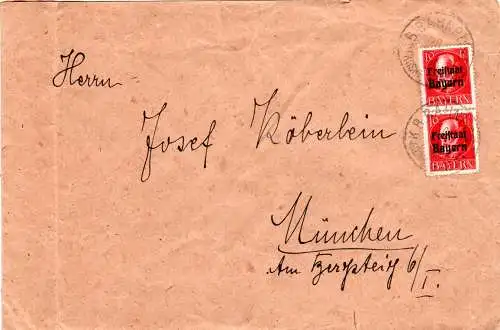 Herrn
Josef Köberlein
München
Am Bergsteig 6/I.
Freistaat
Bayern
BAYERN
Freistaat
Bayern
BAYERN